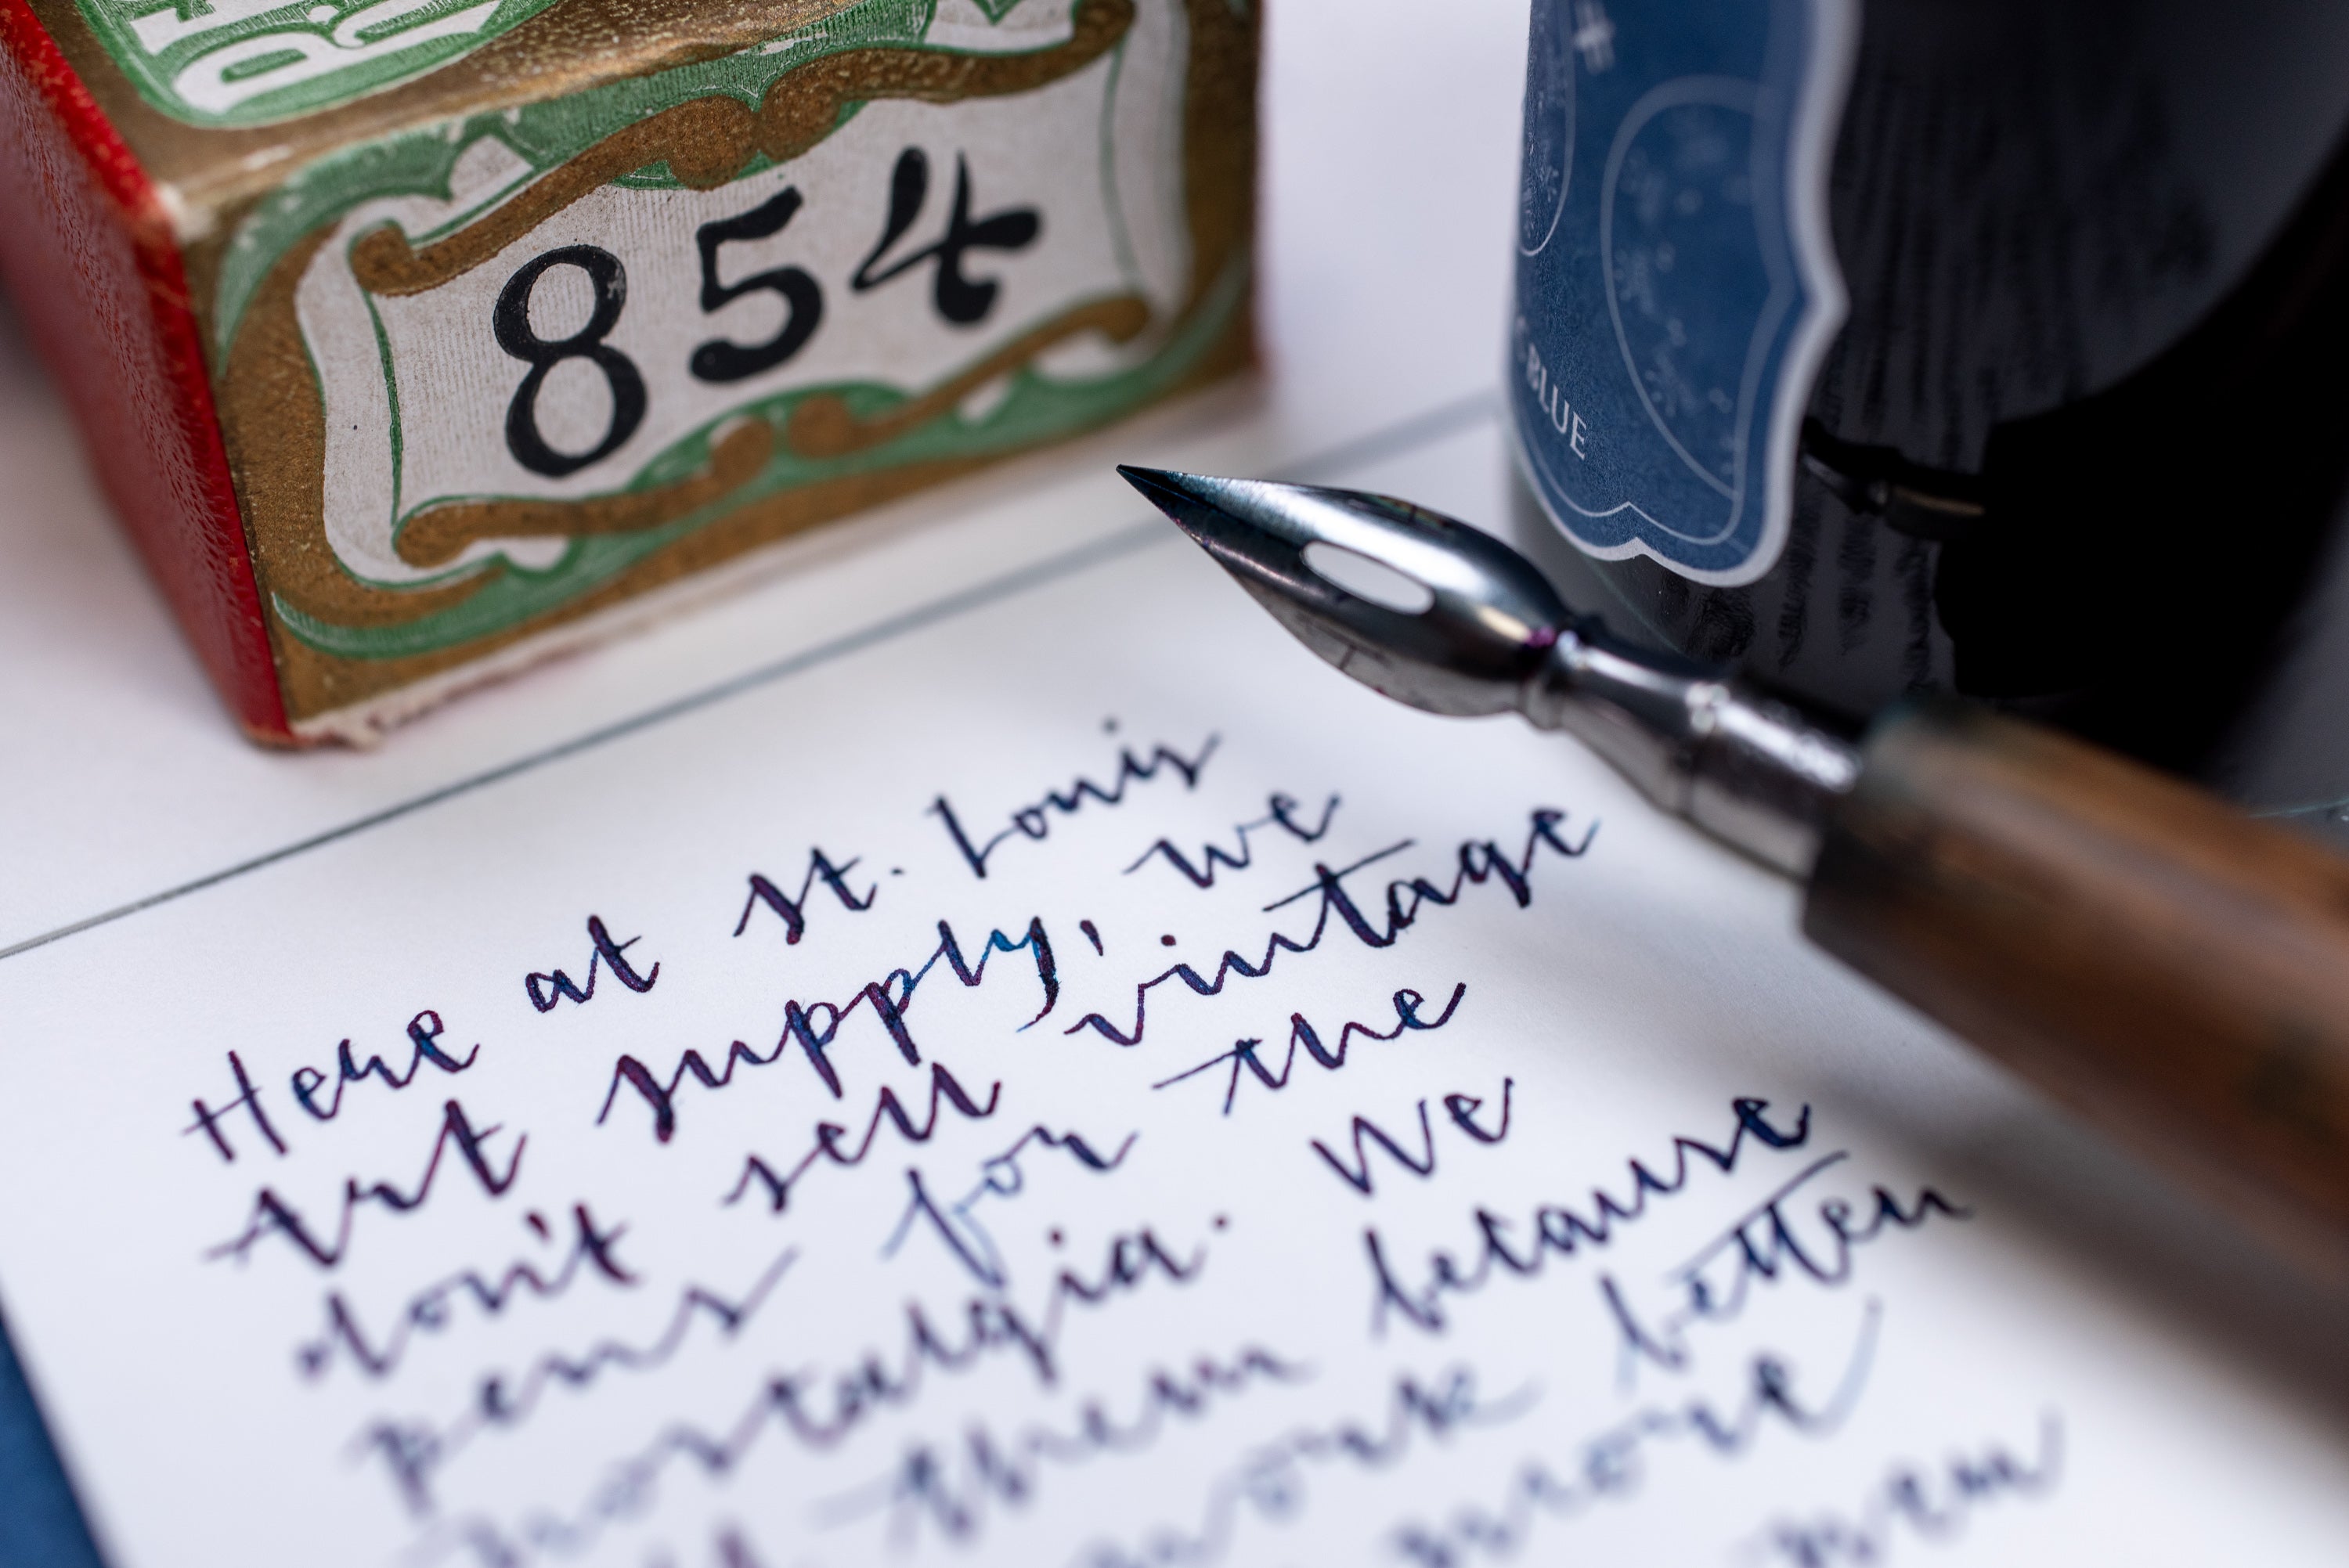 854
BLUE
Here at St. Louis
Art supply, we
don't sell vintage
pens for the
nostalgia. We
sell them because
work better
more